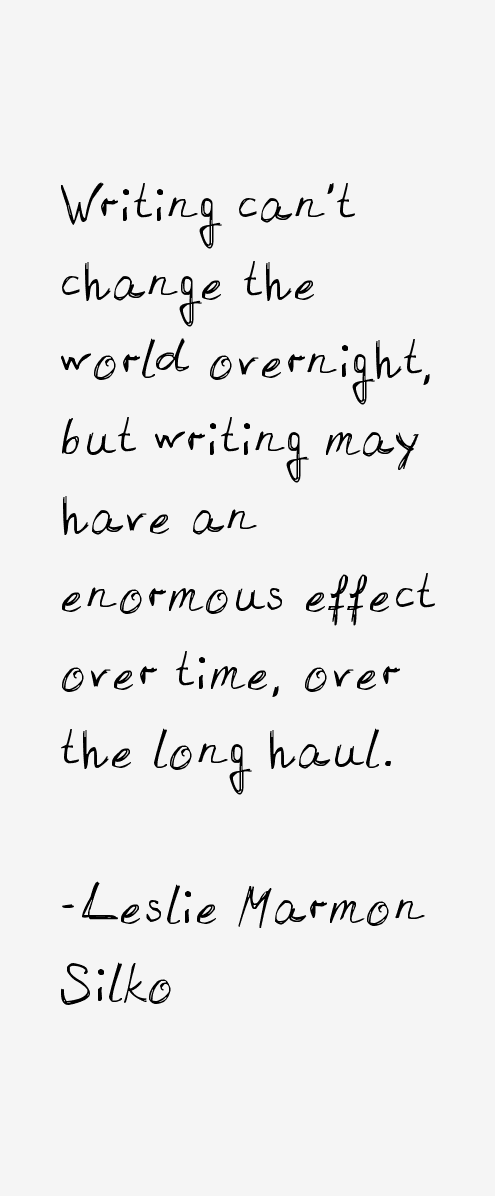 Writing can't
change the
world overnight,
but writing may
have an
enormous effect
over time, over
the long haul.
-Leslie Marmon
Silko